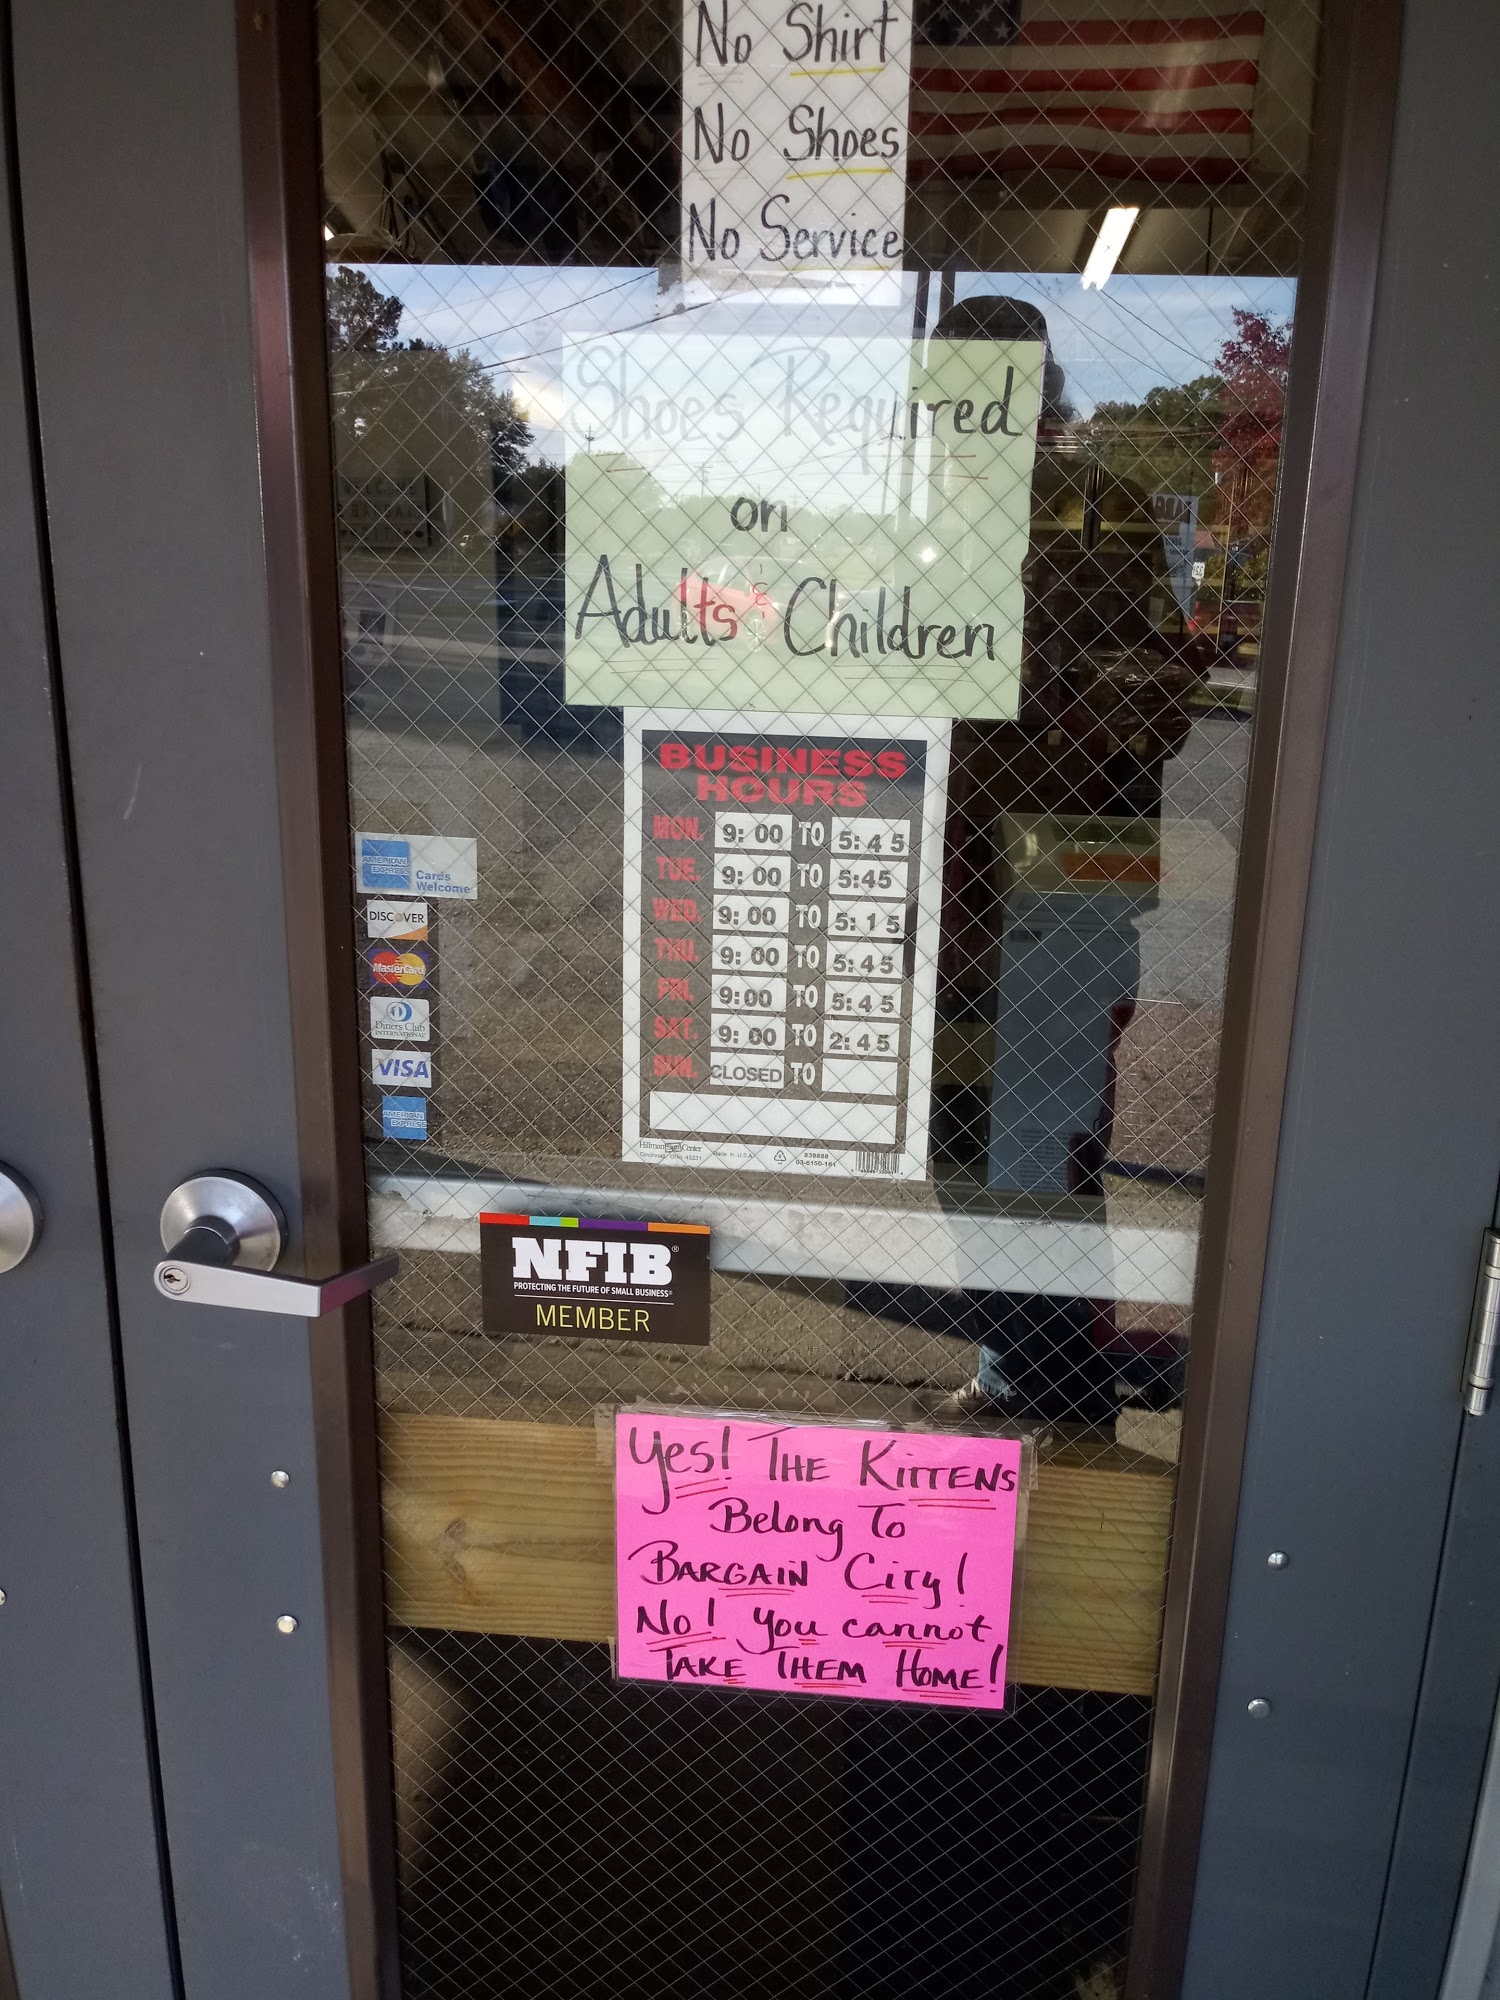 No Shirt
No Shoes
No Service
Shoes Required
on
Adults & Children
BUSINESS
HOURS
MON. 9:00 TO 5:45
TUE. 9:00 TO 5:45
WED. 9:00 TO 5:15
THU. 9:00 TO 5:45
FRI. 9:00 TO 5:45
SAT. 9:00 TO 2:45
SUN. CLOSED TO
Hillman Sign Center
Cincinnati, Ohio 45231
Made in U.S.A.
839888
03-6150-161
AMERICAN
EXPRESS
Cards
Welcome
DISCOVER
MasterCard
Diners Club
INTERNATIONAL
VISA
AMERICAN
EXPRESS
NFIB®
PROTECTING THE FUTURE OF SMALL BUSINESS®
MEMBER
Yes! THE KITTENS
Belong To
BARGAIN City!
No! you cannot
TAKE THEM HOME!